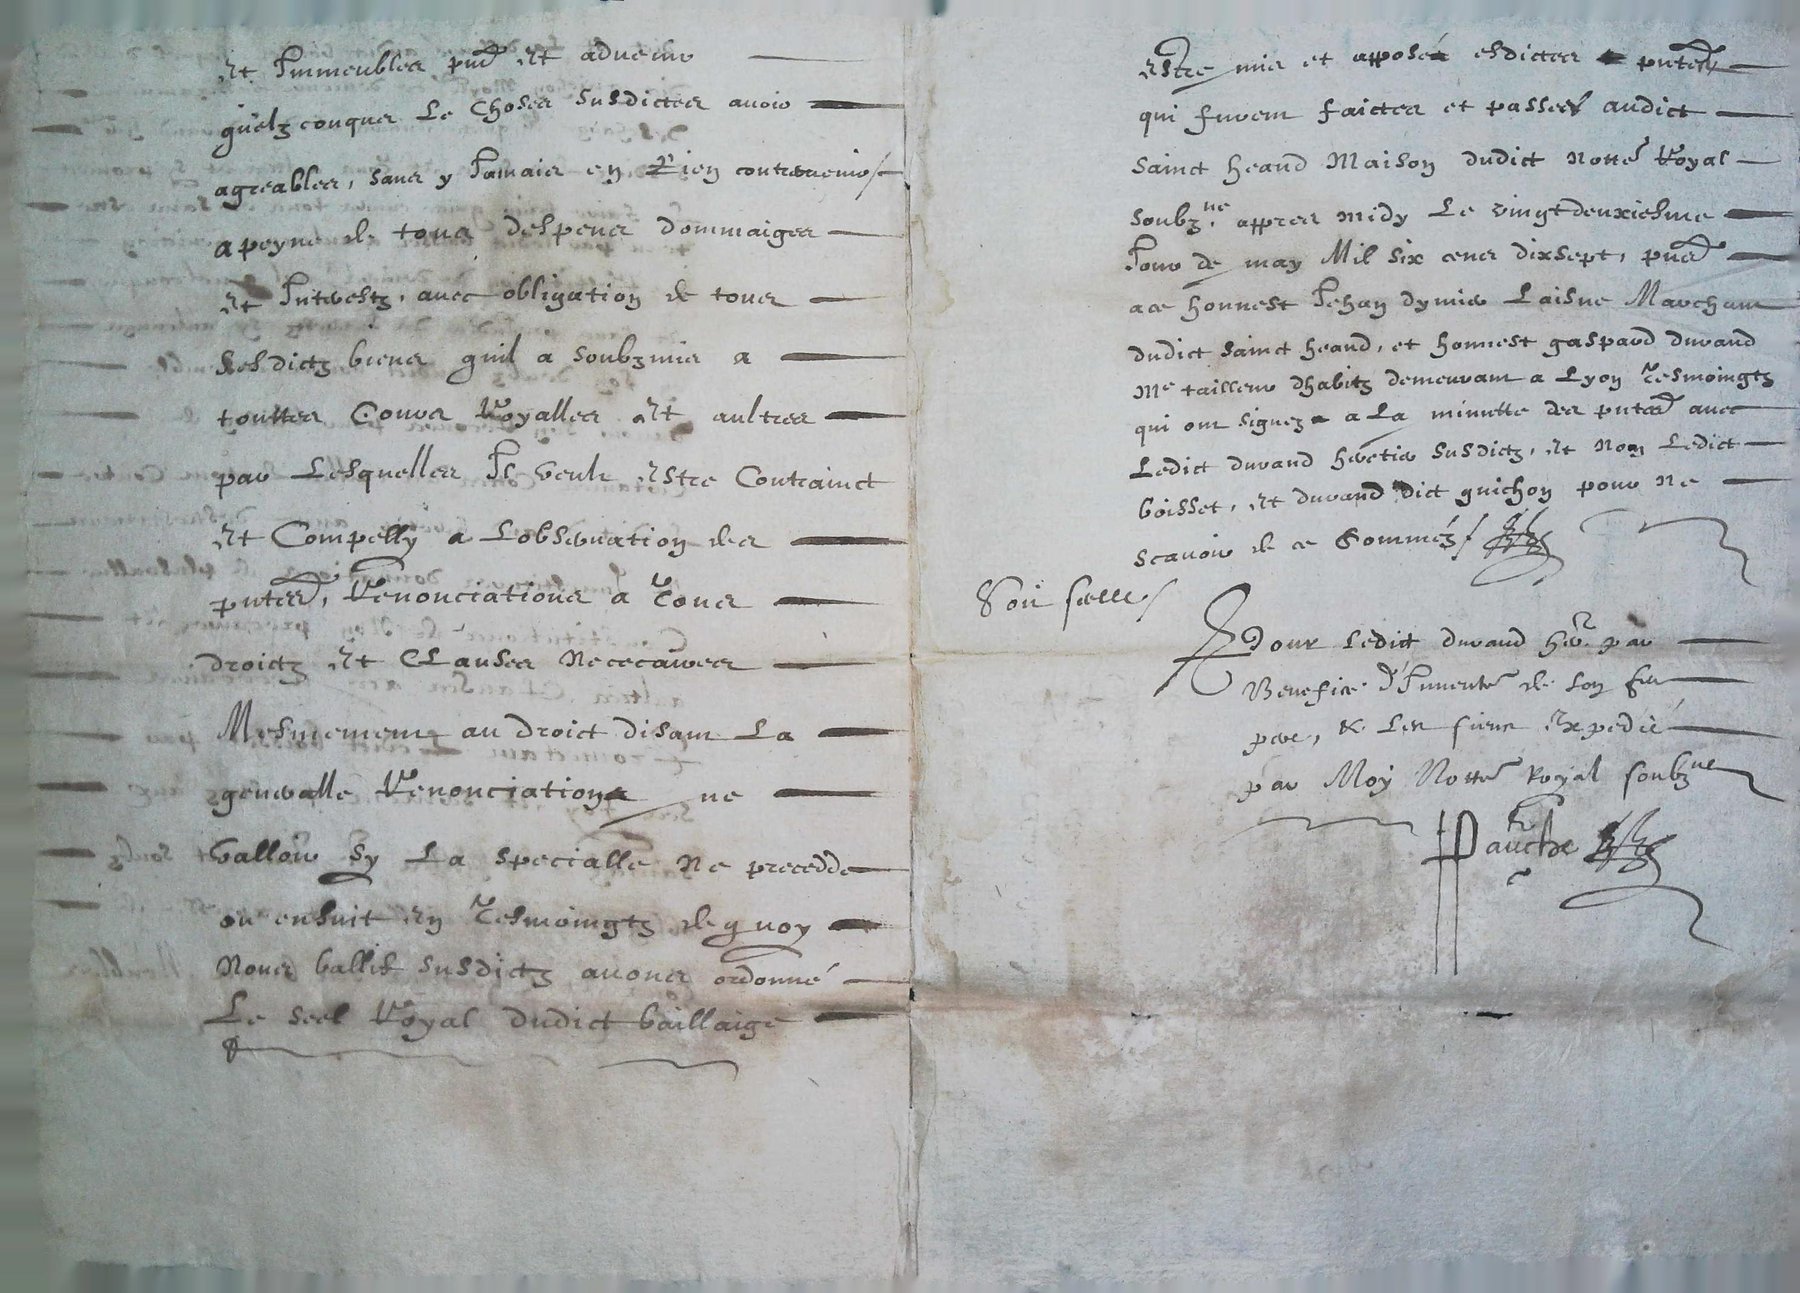 et Immeubles pnts et advenir
quelzconques Le Choses susdictes avoir
agreables, sans y Jamais en Rien contrevenir
a peyne de tous despens dommaiges
et Interestz, avec obligation de tous
sesdictz biens quil a soubzmis a
touttes Cours Royalles et aultres
par Lesquelles Il veult estre Contrainct
et Compelly a Lobservation des
pntes, Renonciations a Tous
droictz et Clauses Necessaires
Mesmement au droict disant La
generalle Renonciation ne
valloir sy La specialle ne precedde
ou ensuit en Tesmoingtz de quoy
Nous Ballif susdictz avons ordonné
Le seel Royal dudict bailliaige
estre mis et apposé esdictes pntes
qui furent faictes et passees audict
sainct heand Maison dudict Notte Royal
soubz.ne appres midy Le vingtdeuxiesme
Jour de may Mil six cens dixsept, pnts
a ce honnest Jehan dymier Laisne Marchant
dudict sainct heand, et honnest gaspard durand
Me tailleur dhabitz demeurant a Lyon Tesmoingtz
qui ont signez a La minutte des pntes avec
Ledict durand heretier susdictz, et Non Ledict
boisset, et durand dict guichon pour ne
scavoir de ce Sommés
Soit seelle
Pour Ledict durand her. par
Benefice d'Inventre de son feu
pere, & Les siens Expedié
par Moy Notte Royal soubzne
Pauche